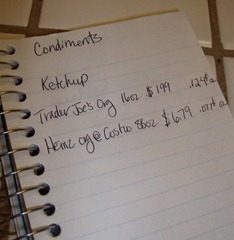 Condiments
Ketchup
Trader Joe's Org 16oz $1.99 .124¢ oz
Heinz org @ Costco 88oz $6.79 .077¢ oz